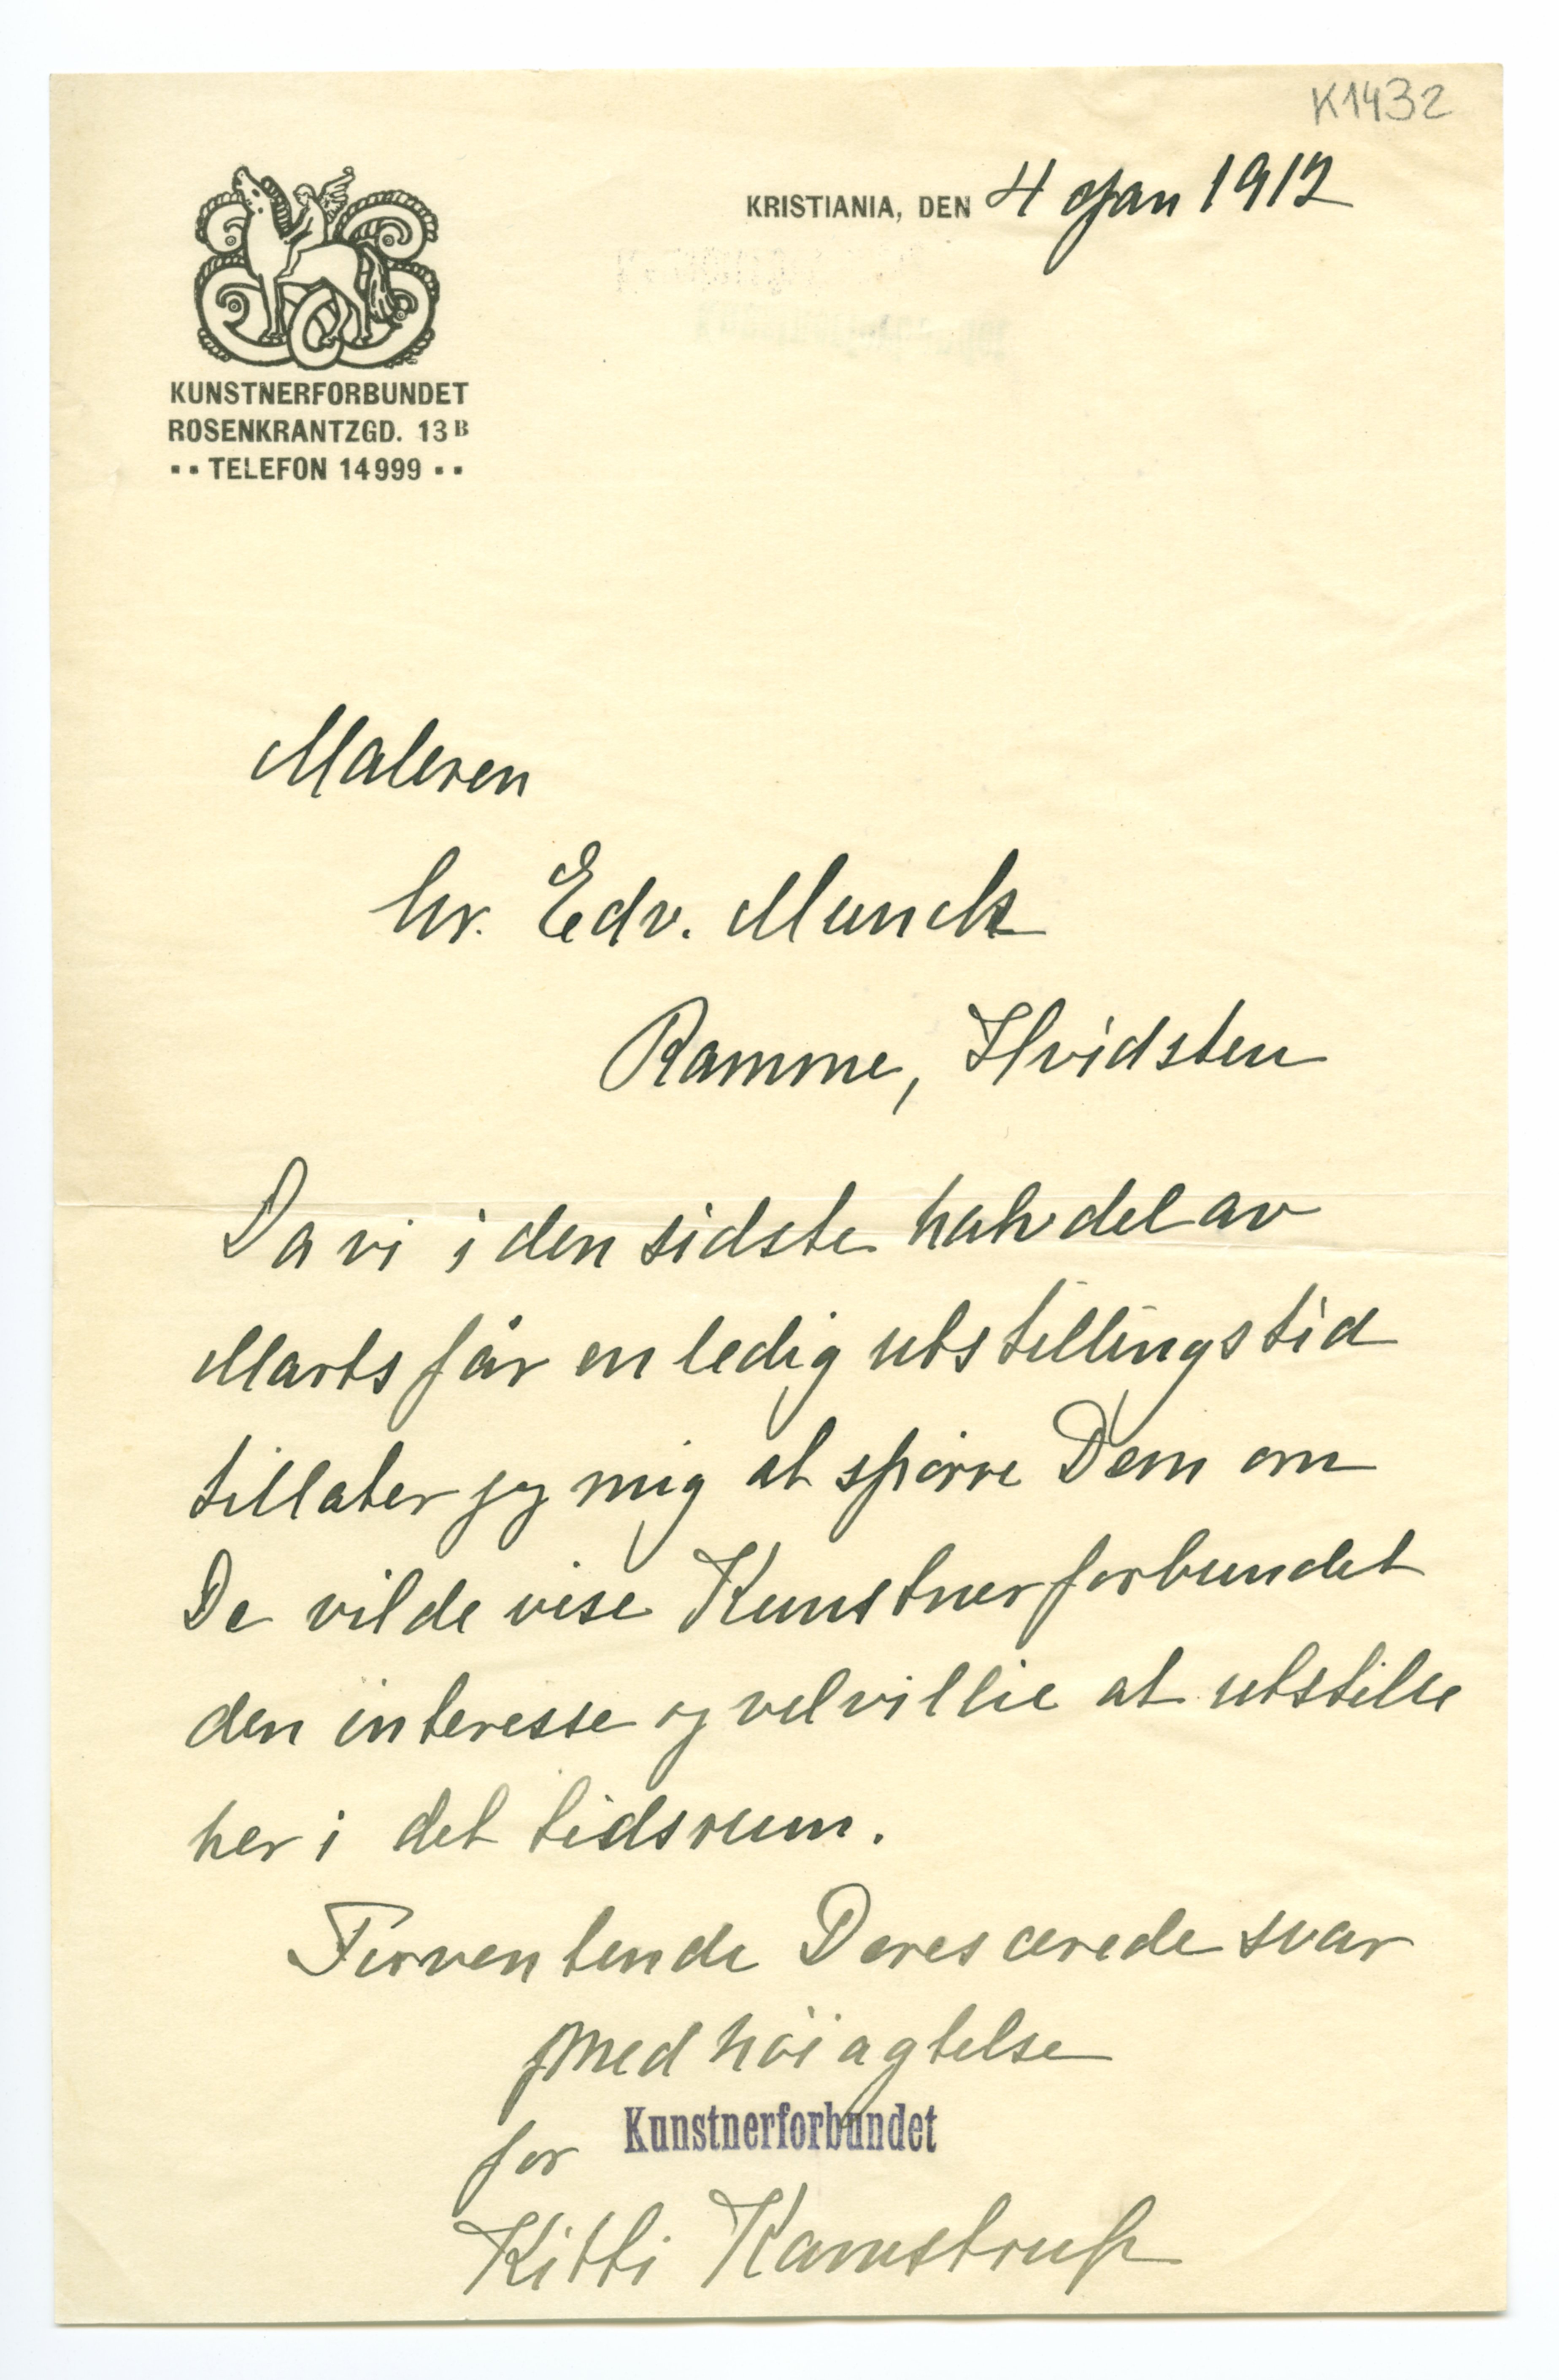 K1432
KRISTIANIA, DEN 4 Jan 1912
KUNSTNERFORBUNDET
ROSENKRANTZGD. 13B
•• TELEFON 14999 ••
Maleren
hr. Edv. Munch
Ramme, Hvidsten
Da vi i den sidste halvdel av
Marts får en ledig utstillingstid
tillater jeg mig at spörre Dem om
De vilde vise Kunstnerforbundet
den interesse og velvillie at utstille
her i det tidsrum.
Forventende Deres ærede svar
Med höiagtelse
for Kunstnerforbundet
Kitti Kamstrup